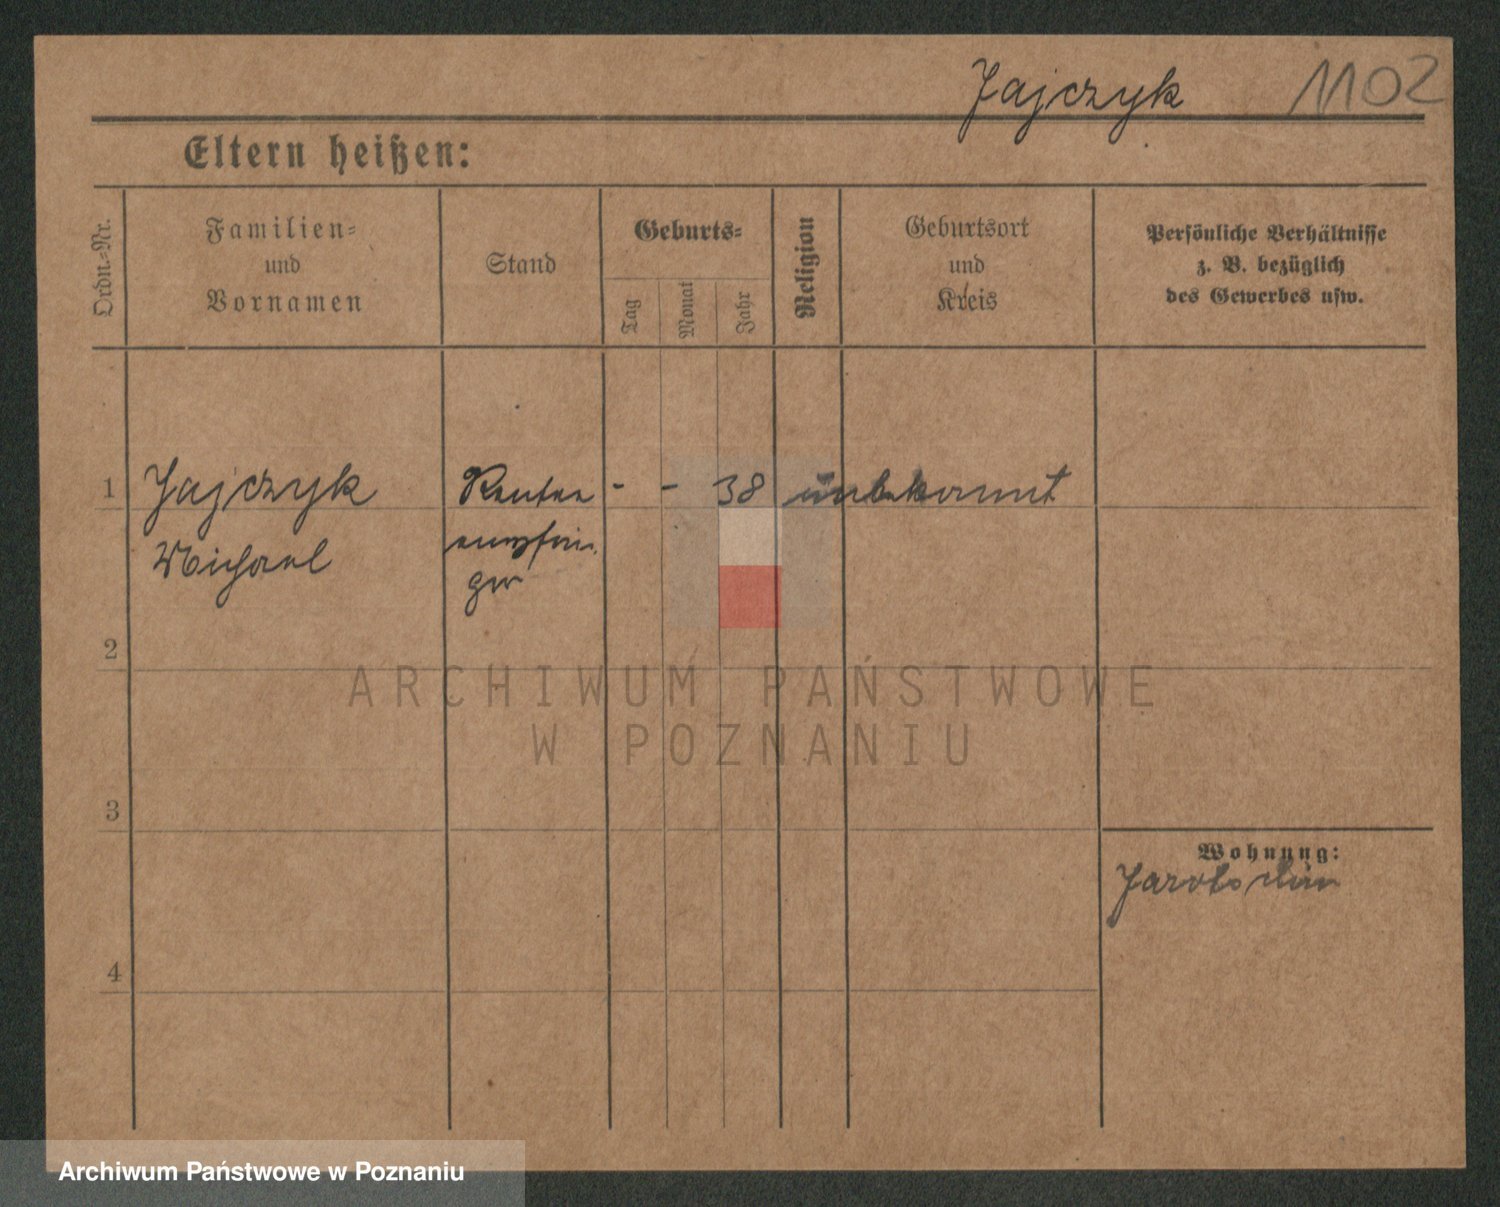 Jajczyk 1102
Eltern heißen:
Ordn.-Nr.
Familien-
und
Vornamen
Stand
Geburts-
Tag
Monat
Jahr
Religion
Geburtsort
und
Kreis
Persönliche Verhältnisse
z. B. bezüglich
des Gewerbes usw.
1 Jajczyk Renten - - 38 unbekannt
Michael
empfän
ger
2
3
4
Wohnung:
Jarotschin
ARCHIWUM PAŃSTWOWE
W POZNANIU
Archiwum Państwowe w Poznaniu